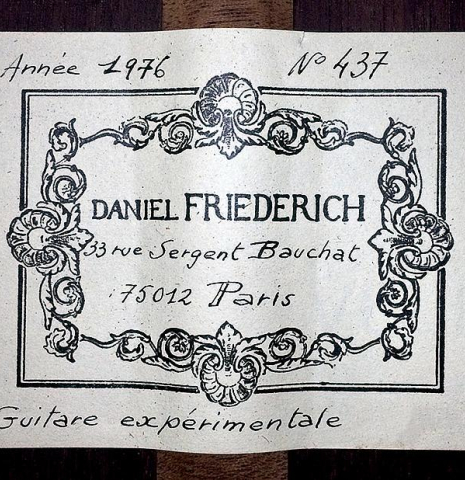 Année 1976 No 437
DANIEL FRIEDERICH
33 rue Sergent Bauchat
75012 Paris
Guitare expérimentale